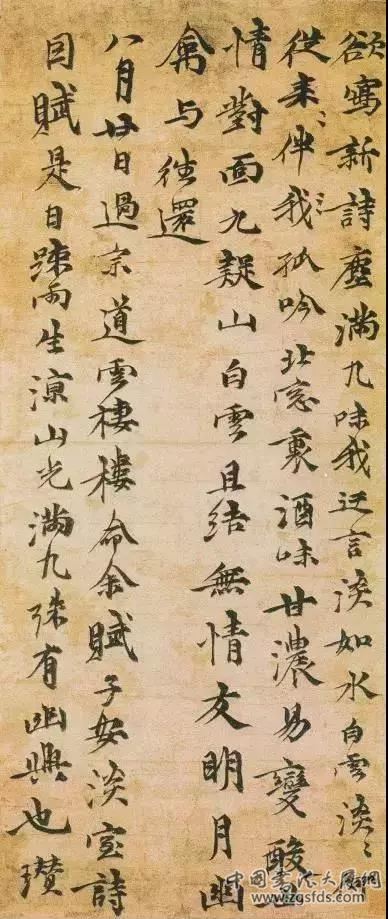 欲寫新詩塵滿几味我迂言淡如水白雲淡〻
從來〻伴我〻孤吟北窓裏酒味甘濃易變酸世
情對面九疑山白雲且結無情友明月幽
禽与往還
八月廿日過宗道雲棲樓命余賦子安淡室詩
因賦是日疎雨生涼山光滿几殊有幽興也瓚
www.zgsfds.com